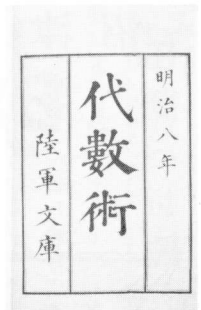 明治八年
代數術
陸軍文庫